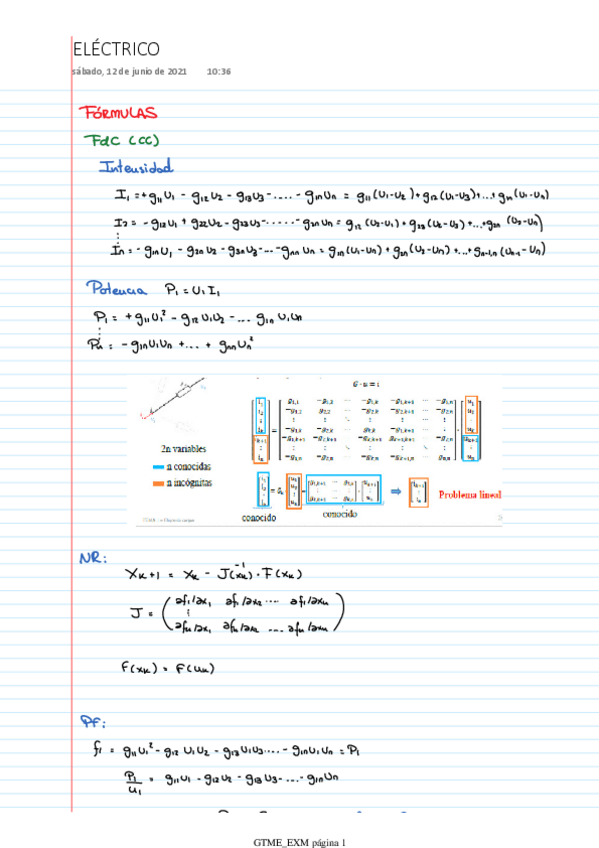 ELÉCTRICO
sábado, 12 de junio de 2021 10:36
FÓRMULAS
FdC (CC)
Intensidad
I₁ = +g₁₁U₁ - g₁₂U₂ - g₁₃U₃ - .... - g₁ₙUₙ = g₁₁(U₁-U₂) + g₁₂(U₁-U₃) + ... + g₁ₙ(U₁-Uₙ)
I₂ = - g₁₂U₁ + g₂₂U₂ - g₂₃U₃ - ..... - g₂ₙUₙ = g₁₂(U₂-U₁) + g₂₃(U₂-U₃) + ... + g₂ₙ(U₂-Uₙ)
⋮
Iₙ = - g₁ₙU₁ - g₂ₙU₂ - g₃ₙU₃ - ... - gₙₙUₙ = g₁ₙ(U₁-Uₙ) + g₂ₙ(U₂-Uₙ) + ... + gₙ₋₁,ₙ(Uₙ₋₁-Uₙ)
Potencia P₁ = U₁I₁
P₁ = +g₁₁U₁² - g₁₂U₁U₂ - ... g₁ₙU₁Uₙ
⋮
Pₙ = - g₁ₙU₁Uₙ + ... + gₙₙUₙ²
G · u = i
2n variables
n conocidas
n incógnitas
conocido
conocido
Problema lineal
NR:
Xₖ₊₁ = Xₖ - J(xₖ)⁻¹ · F(xₖ)
J = ( ∂f₁/∂x₁ ∂f₁/∂x₂ ... ∂f₁/∂xₙ
⋮
∂fₙ/∂x₁ ∂fₙ/∂x₂ ... ∂fₙ/∂xₙ )
F(xₖ) = F(uₖ)
Pf:
f₁ = g₁₁U₁² - g₁₂U₁U₂ - g₁₃U₁U₃ .... - g₁ₙU₁Uₙ = P₁
P₁/U₁ = g₁₁U₁ - g₁₂U₂ - g₁₃U₃ - ... - g₁ₙUₙ
GTME_EXM página 1